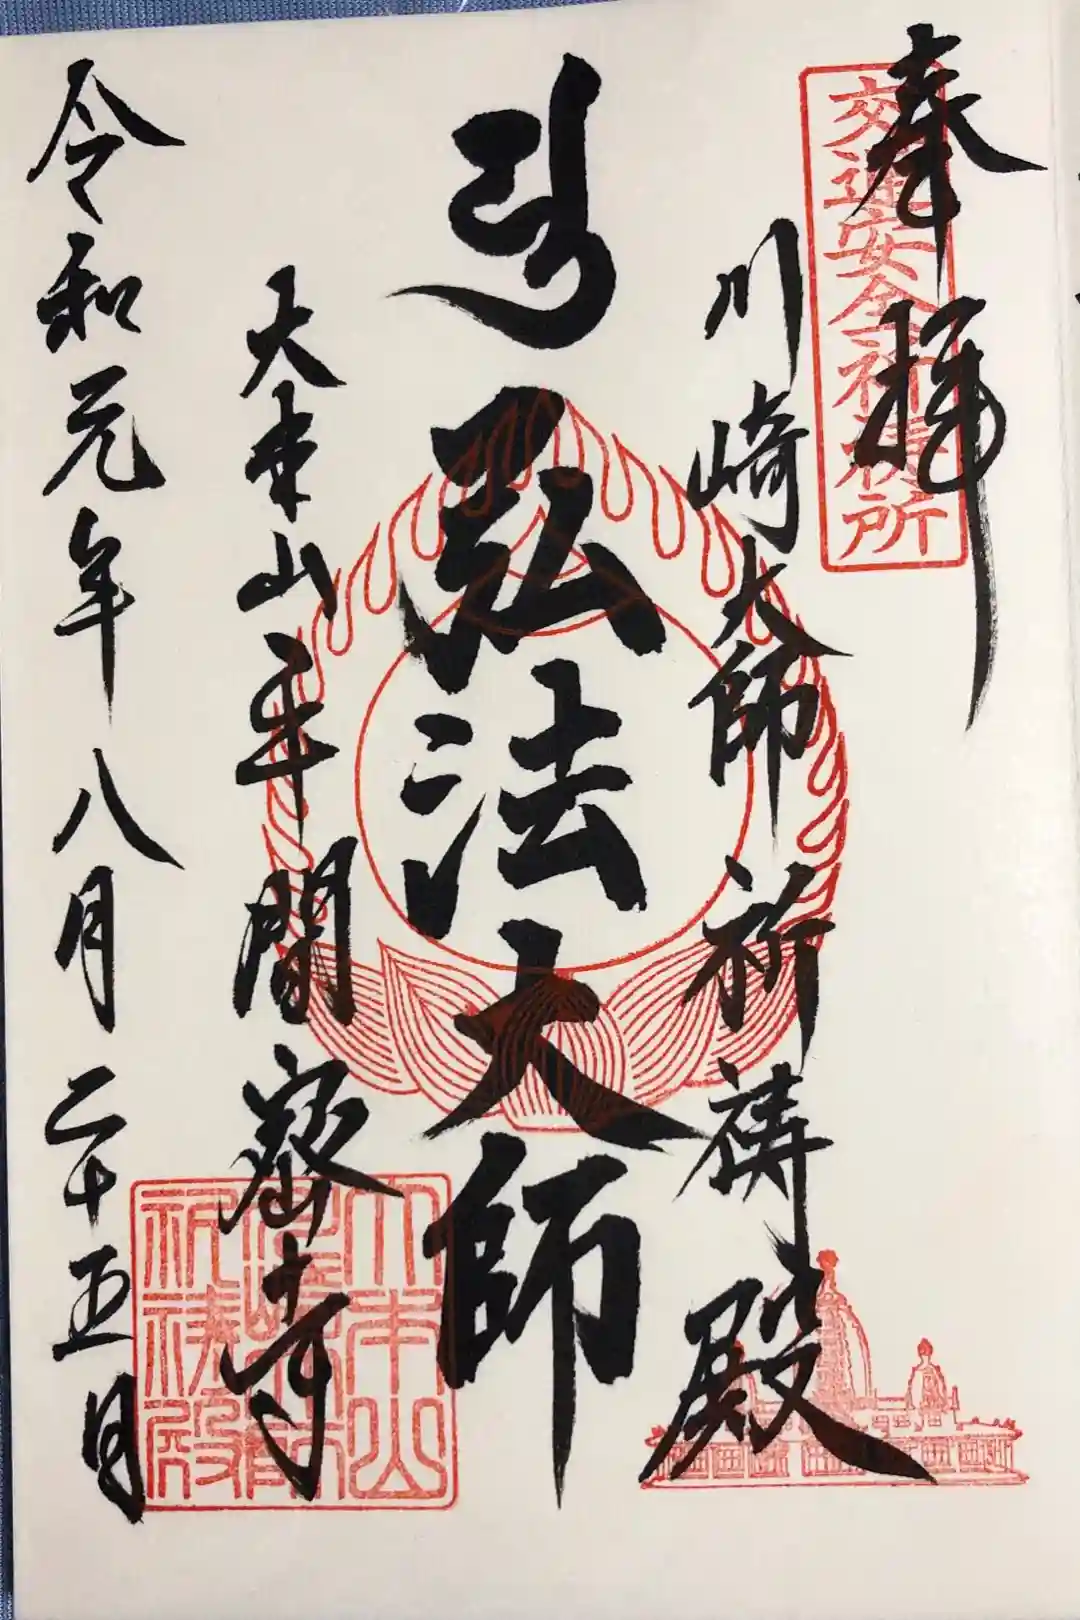 奉拝
交通安全祈祷所
川崎大師祈祷殿
弘法大師
大本山平間密寺
令和元年八月二十五日
大本山
川崎大師
祈祷殿